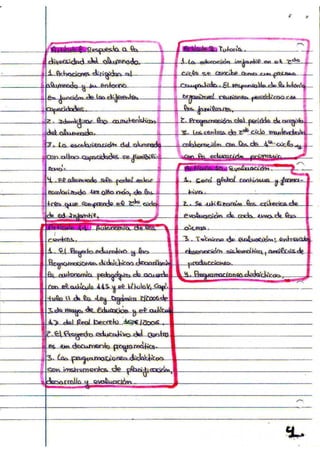 Respuesta a la
diversidad del alumnado.
1. Actuaciones dirigidas al
alumnado y su entorno
en función de las diferentes
capacidades.
2. Identificar las características
del alumnado.
3. La escolarización del alumnado
con altas capacidades se flexibili-
zará.
4. El alumnado sólo podrá estar
escolarizado un año más de los
tres que comprende el 2º ciclo
de ed. infantil.
Autonomía de los
centros.
1. El Proyecto educativo y las
Programaciones didácticas desarrollarán
la autonomía pedagógica de acuerdo
con el artículo y el título, Capí-
tulo II de la Ley Orgánica 2/2006 de
3 de mayo de Educación y el artículo
del Real Decreto
2. El Proyecto educativo del Centro
es un documento programático.
3. Las programaciones didácticas
son instrumentos de planificación,
desarrollo y evaluación.
Tutoría.
1. La educación infantil en el 2º
ciclo se concibe como un proceso
compartido. El responsable de la tutoría
organizará reuniones periódicas con
las familias.
2. Programación del periodo de acogida
3. Los centros de 2º ciclo mantendrán
colaboración con los de 1er ciclo y
con la educación primaria.
Evaluación.
1. Será global continua y forma-
tiva.
2. Se utilizarán los criterios de
evaluación de cada una de las
áreas.
3. Técnicas de evaluación: entrevista,
observación sistemática, análisis de
producciones.
4. Programaciones didácticas.
4